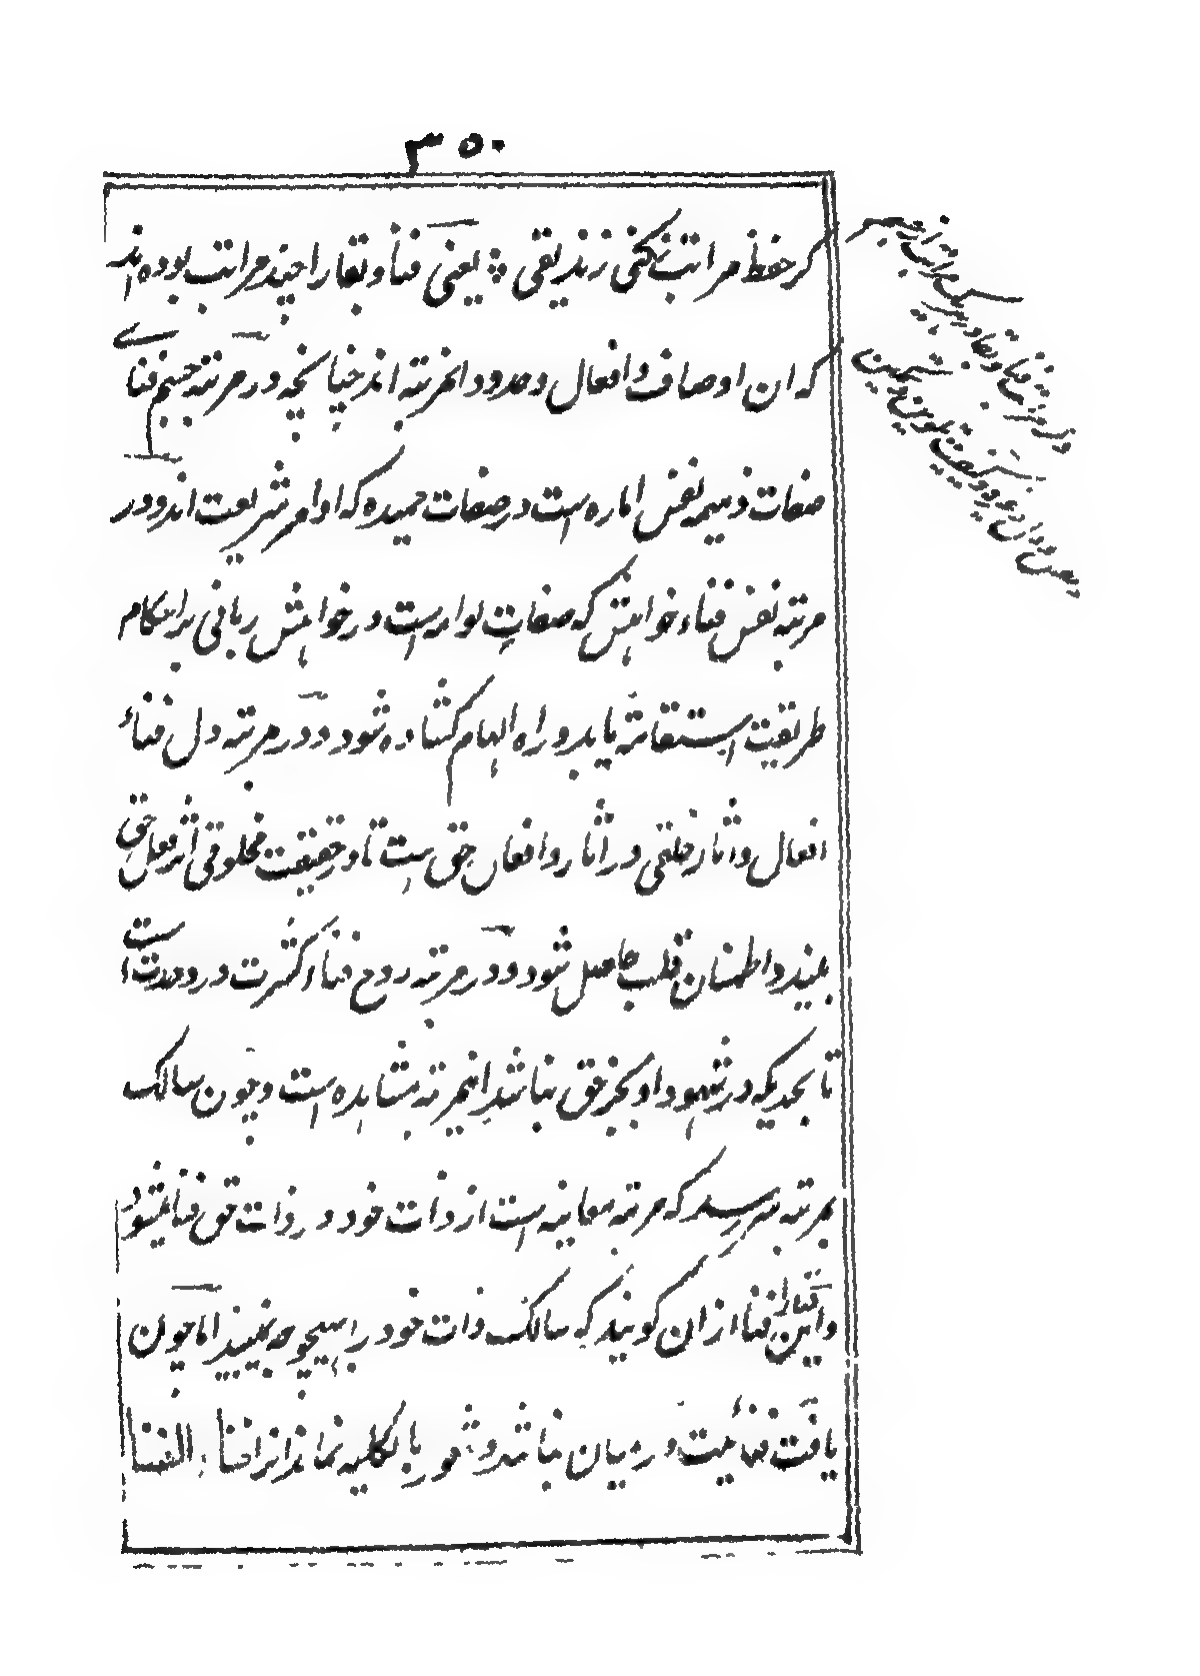 ۳۵۰
گر حفظ مراتب نکنی زندیقی ؞ یعنی فنا و بقا را چند مراتب بوده اند
که ان اوصاف وافعال وحدود انمرتبه اند چنانچه در مرتبه جسم فنائے
صفات ذمیمه نفس اماره است در صفات حمیده که اوامر شریعت اند ودر
مرتبه نفس فناء خواهش که صفات لوامه است در خواهش ربانی بر احکام
طریقت استقامته یابد و راه الهام کشاده شود ودر مرتبه دل فناء
افعال واثار خلقی در اثار وافعال حق است تا در حقیقت مخلوقی اثر فعل حق
بیند واطمنان قلب حاصل شود ودر مرتبه روح فناء کثرت در وحدت است
تا بحدیکه در شهود او بجز حق نباشد اینمرتبه مشاهده است وچون سالک
بمرتبه سر رسد که مرتبه معاینه است از ذات خود در ذات حق فنا میشود
واین فنا را فنا ازان گویند که سالک ذات خود را هیچوجه نمیبیند اما چون
یافت فنائیت در میان نباشد وشعور بالکلیه نماند انرا فناء الفنا